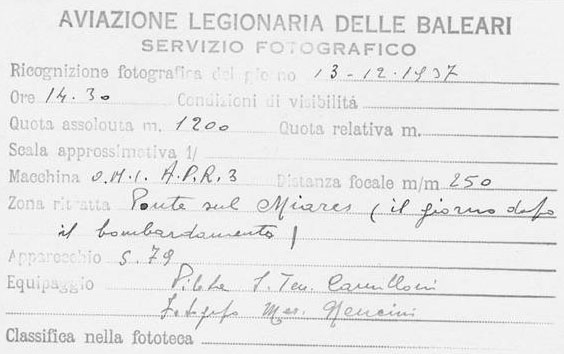 AVIAZIONE LEGIONARIA DELLE BALEARI
SERVIZIO FOTOGRAFICO
Ricognizione fotografica del giorno 13-12-1937
Ore 14.30 Condizioni di visibilitá
Quota assolouta m. 1200 Quota relativa m.
Scala approssimativa 1/
Macchina O.M.I. A.P.R.3 Distanza focale m/m 250
Zona ritratta Ponte sul Miares (il giorno dopo
il bombardamento)
Apparecchio S.79
Equipaggio Pilota S. Ten.
Mencini
Classifica nella fototeca